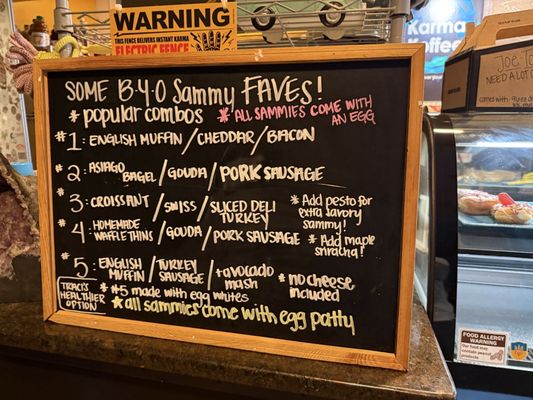 WARNING
THIS FENCE DELIVERS INSTANT KARMA
ELECTRIC FENCE
Karma
Coffee
SOME B·Y·O Sammy FAVES!
* popular combos
* ALL SAMMIES COME WITH AN EGG
#1: ENGLISH MUFFIN / CHEDDAR / BACON
#2: ASIAGO BAGEL / GOUDA / PORK SAUSAGE
#3: CROISSANT / SWISS / SLICED DELI TURKEY
* Add pesto for extra savory sammy!
#4: HOMEMADE WAFFLE THINS / GOUDA / PORK SAUSAGE
* Add maple sriracha!
#5: ENGLISH MUFFIN / TURKEY SAUSAGE / + avocado mash
* no cheese included
TRACI'S HEALTHIER OPTION
* #5 made with egg whites
* all sammies come with egg patty
JOE TO
NEED A LOT
comes with
FOOD ALLERGY
WARNING
Our food may
contain peanuts